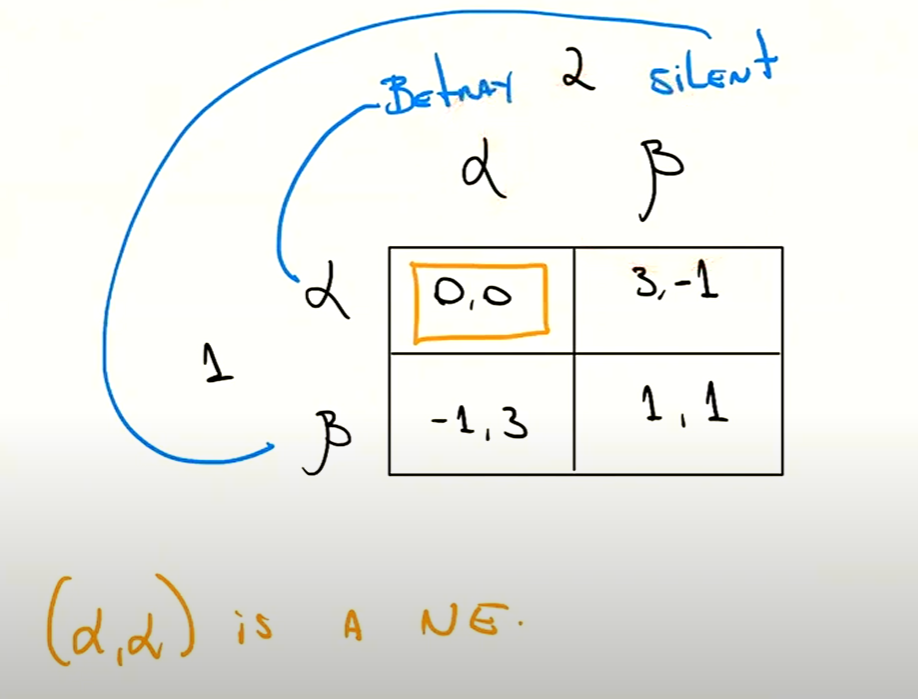 Betray 2 silent
α β
α 0,0 3,-1
1
β -1,3 1,1
(α,α) is A NE.